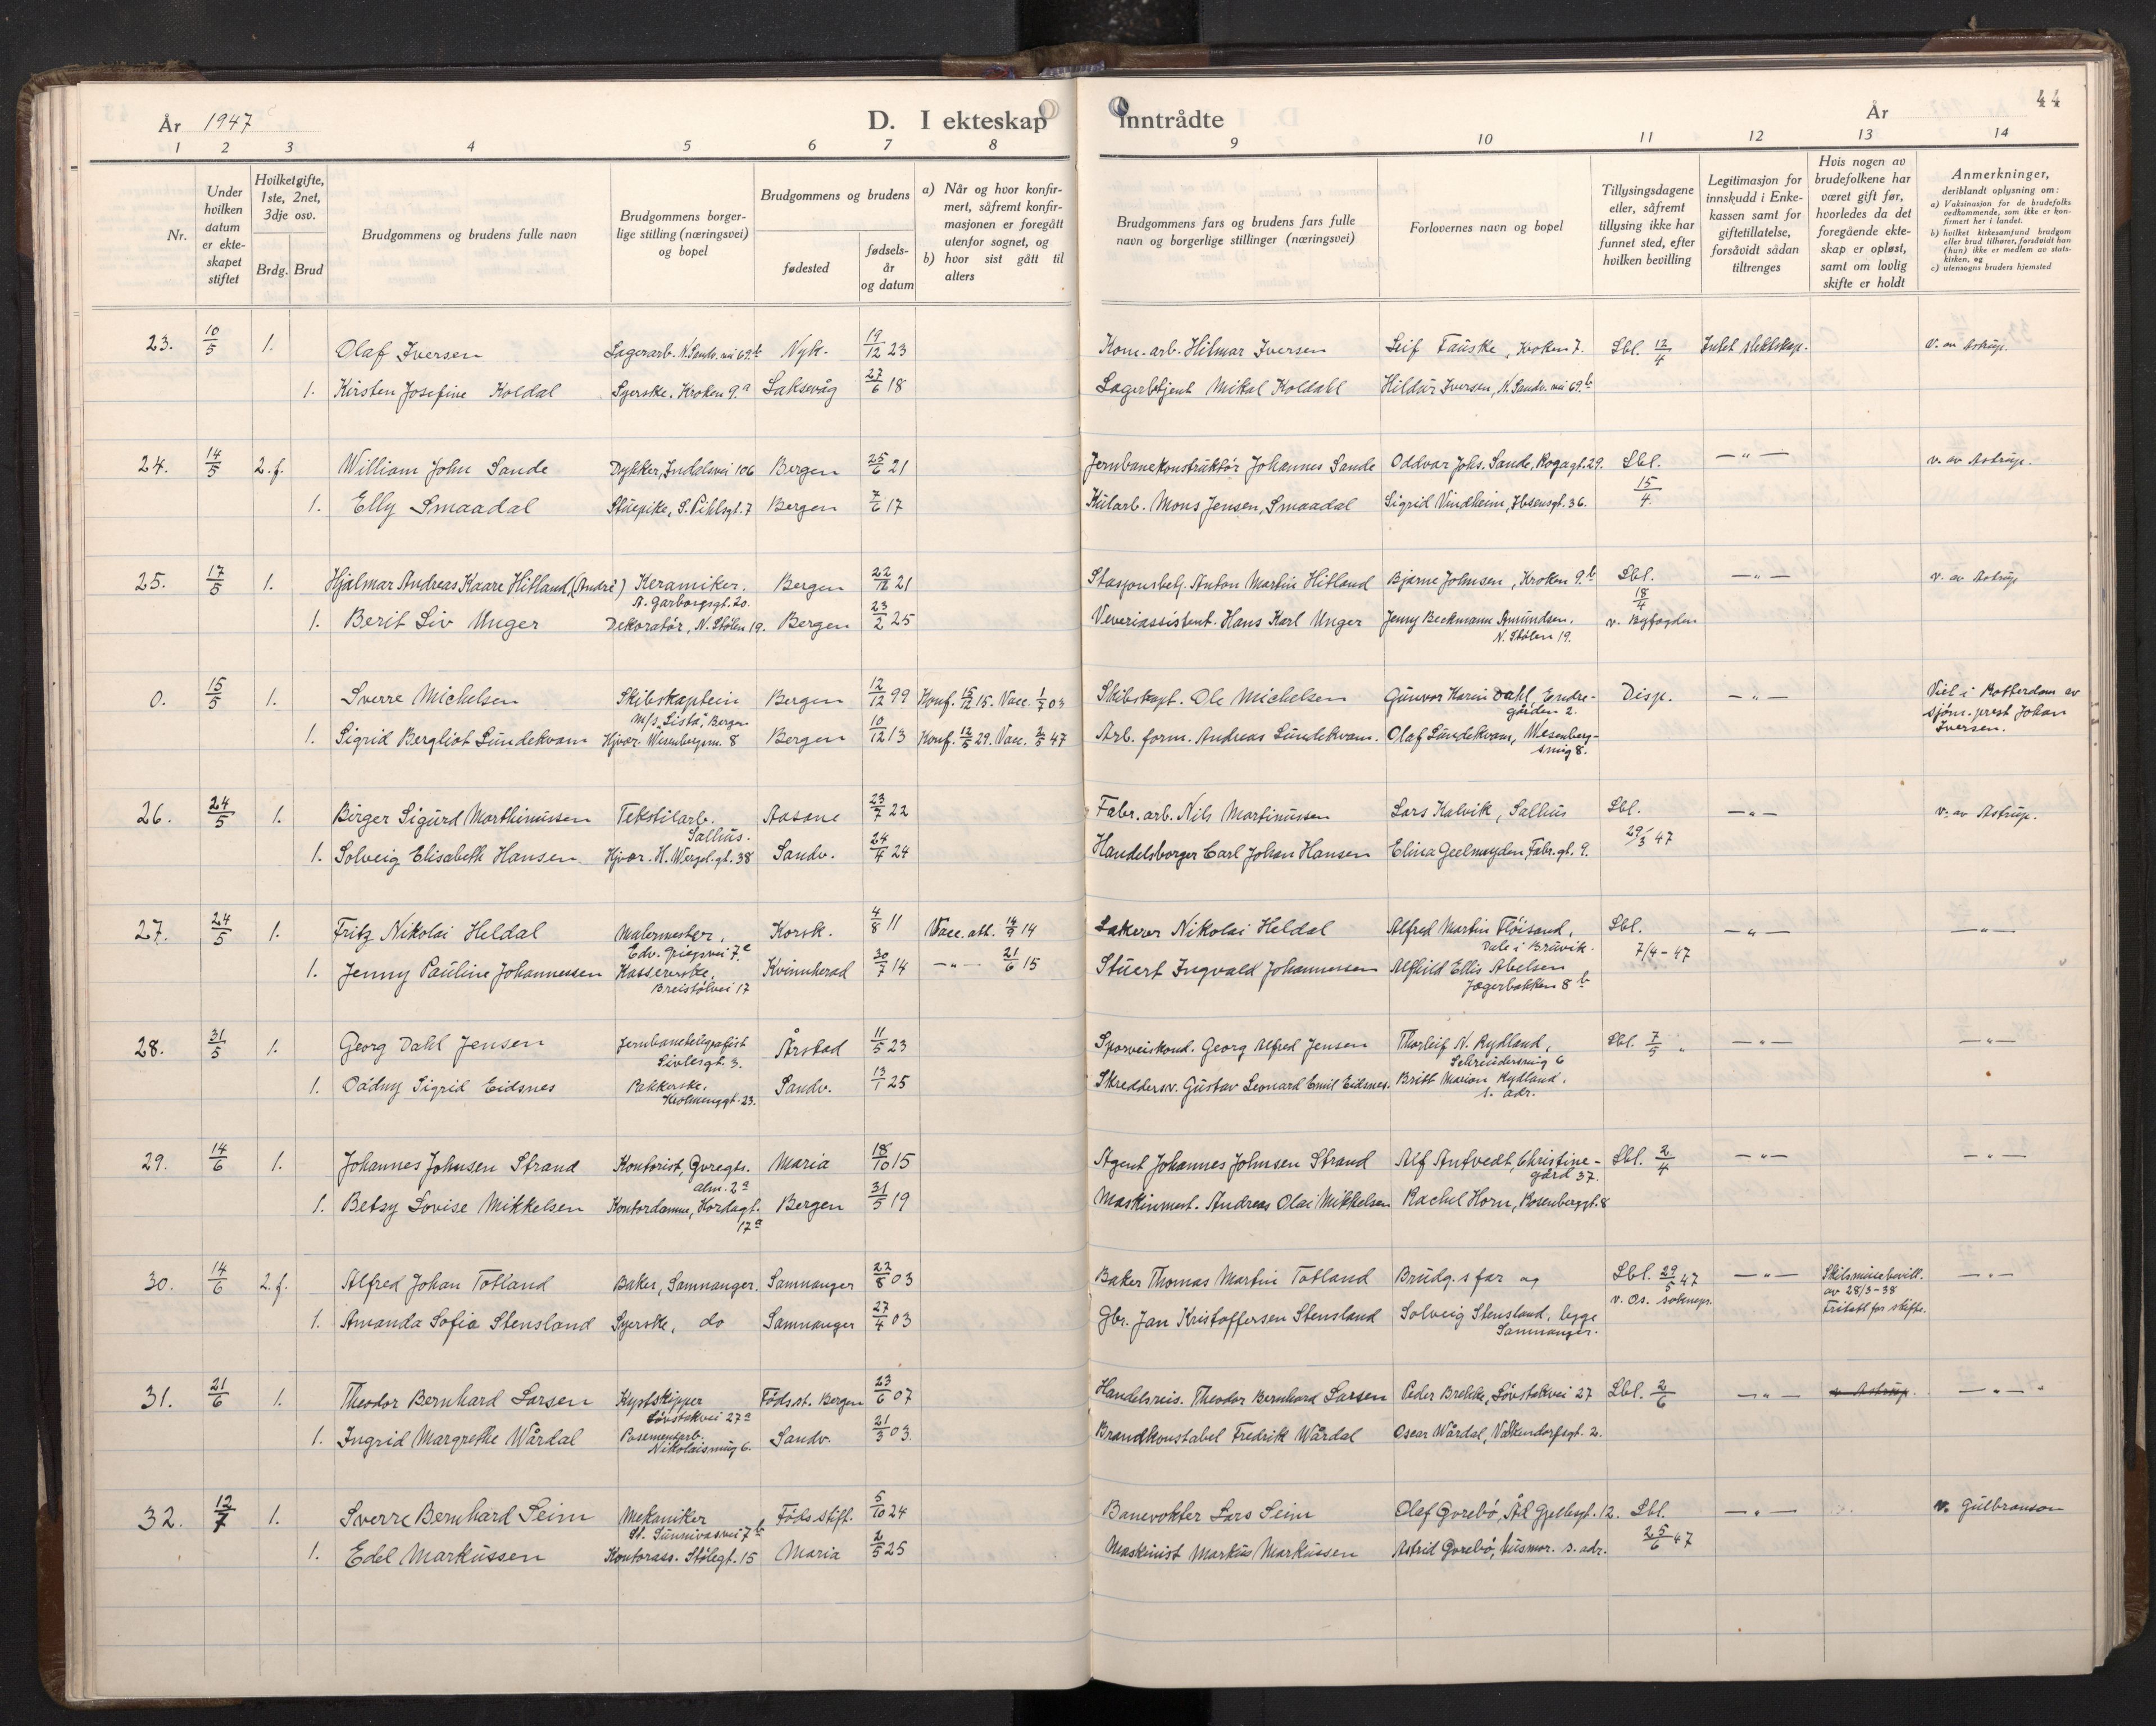 År 1947
D. I ekteskap inntrådte
År
44
1 2 3 4 5 6 7 8 9 10 11 12 13 14
Nr.
Under hvilken datum er ekteskapet stiftet
Hvilket gifte, 1ste, 2net, 3dje osv.
Brdg. Brud
Brudgommens og brudens fulle navn
Brudgommens borgerlige stilling (næringsvei) og bopel
Brudgommens og brudens
fødested
fødselsår og datum
a) Når og hvor konfirmert, såfremt konfirmasjonen er foregått utenfor sognet, og
b) hvor sist gått til alters
Brudgommens fars og brudens fars fulle navn og borgerlige stillinger (næringsvei)
Forlovernes navn og bopel
Tillysingsdagene eller, såfremt tillysing ikke har funnet sted, efter hvilken bevilling
Legitimasjon for innskudd i Enkekassen samt for giftetillatelse, forsåvidt sådan tiltrenges
Hvis nogen av brudefolkene har været gift før, hvorledes da det foregående ekteskap er opløst, samt om lovlig skifte er holdt
Anmerkninger, deriblandt oplysning om:
a) Vaksinasjon for de brudefolks vedkommende, som ikke er konfirmert her i landet.
b) hvilket kirkesamfund brudgom eller brud tilhører, forsåvidt han (hun) ikke er medlem av statskirken, og
c) utensogns bruders hjemsted
23. 10/5 1. Olaf Iversen Lagerarb. N. Sandv. vei 69.b Nyk. 19/12 23 Kom.-arb. Hilmar Iversen Leif Fauske, Kroken 7. Lbl. 12/4 Intet slektskap. v. av Astrup.
1. Kirsten Josefine Koldal Syerske. Kroken 9.a Laksevåg 27/6 18 Lagerbetjent Mikal Koldahl Hildur Iversen, N. Sandv. vei 69.b
24. 14/5 2. f. William John Sande Dykker, Indalsvei 106 Bergen 25/6 21 Jernbanekonstruktör Johannes Sande Oddvar Johs. Sande, Rogagt. 29. Lbl. — " — v. av Astrup.
1. Elly Smaadal Stuepike, S. Pihlsgt. 7 Bergen 7/6 17 Kularb. Mons Jensen, Smaadal Sigrid Vindheim, Ibsensgt. 36. 15/4.
25. 17/5 1. Hjalmar Andreas Kaare Hitland, (André) Keramiker. Bergen 22/12 21 Stasjonsbetj. Anton Martin Hitland Bjarne Johnsen, Kroken 9.b Lbl. — " — v. av Astrup
A. Garborgsgt. 20. 18/4
1. Berit Liv Unger Dekoratör, N. Stölen 19. Bergen 23/2 25 Veveriassistent. Hans Karl Unger Jenny Beckmann Amundsen. v. Byfogden
N. Stölen 19.
0. 15/5 1. Sverre Michelsen Skibskaptein Bergen 12/12 99 Konf. 15/12 15. Vacc. 1/7 03 Skibskapt. Ole Michelsen Gunvor Karin Dahl, Endre- Disp. — " — Viet i Rotterdam av
m/s "Lista", Bergen gården 2. sjøm. prest Johan
1. Sigrid Bergliot Sundekvam Hjvær. Wesenbergsm. 8 Bergen 10/12 13 Konf. 12/5 29. Vacc. 2/5 47 Arb. form. Andreas Sundekvam. Olaf Sundekvam, Wesenberg- Iversen.
smug 8.
26. 24/5 1. Birger Sigurd Marthinussen Tekstilarb. Aasane 23/7 22 Fabr. arb. Nils Martinussen Lars Kalvik, Salhus Lbl. — " — v. av Astrup.
Salhus.
1. Solveig Elisabeth Hansen Hjvær. H. Wergel. gt. 38 Sandv. 24/4 24 Handelsborger Carl Johan Hansen Elina Geelmuyden, Fabr. gt. 9. 29/3 47
27. 24/5 1. Fritz Nikolai Heldal Malermester, Korsk. 4/8 11 Vacc. att. 14/9 14 Lakerer Nikolai Heldal Alfred Martin Flöisand, Lbl. — " — — " —
Edv. Griegsvei 7.c Dale i Bruvik. 7/4 - 47
1. Jenny Pauline Johannessen Kassererske, Kvinnherad 30/7 14 — " — 21/6 15 Stuert Ingvald Johannessen Alfhild Ellis Abelsen
Breistölvei 17 Jægerbakken 8 b
28. 31/5 1. Georg Dahl Jensen Jernbanetelegrafist Årstad 11/5 23 Sporveiskond. Georg Alfred Jensen Thorleif N. Rydland, Lbl. 7/5 — " — — " —
Sivlesgt. 3. Schreudersmug 6
1. Oddny Sigrid Eidsnes Pakkerske. Sandv. 13/1 25 Skreddersv. Gustav Leonard Emil Eidsnes. Britt Marion Rydland.
Holmenggt. 23. s. adr.
29. 14/6 1. Johannes Johnsen Strand Kontorist, Øvregts. Maria 18/10 15 Agent Johannes Johnsen Strand Alf Antvedt, Christine- Lbl. 2/4 — " — — " —
alm. 2a gård 37.
1. Betsy Lovise Mikkelsen Kontordame, Hordagt. Bergen 31/5 19 Maskinmest. Andreas Olai Mikkelsen Rachel Horn, Rosenberggt. 8
17a
30. 14/6 2. f. Alfred Johan Totland Baker, Samnanger. Samnanger 22/8 03 Baker Thomas Martin Totland Brudg. s far og Lbl. 29/5 47 — " — Skilsmissebevill. — " —
v. Os. soknepr. av 28/3-38
1. Amanda Sofia Stensland Syerske, do Samnanger 27/4 03 Gbr. Jan Kristoffersen Stensland Solveig Stensland, begge Fritatt for skifte.
Samnanger.
31. 21/6 1. Theodor Bernhard Larsen Kystskipper Föds.st. Bergen 23/6 07 Handelsreis. Theodor Bernhard Larsen Peder Brekke, Lövstakvei 27 Lbl. 2/6 — " — v Astrup. — " —
Lövstakvei 27a
1. Ingrid Margrethe Wårdal Posementarb. Sandv. 21/3 03. Brandkonstabel Fredrik Wårdal Oscar Wårdal, Valkendorfsgt. 2.
Nikolaismug 6.
32. 12/7 1. Sverre Bernhard Seim Mekaniker Föds.stift. 5/10 24 Banevokter Lars Seim Olaf Gvrebö, Ål Gjellesgt. 12. Lbl. — " — v. Gulbranson
St. Sunnivasvei 7b
1. Edel Markussen Kontorass. Stölegt. 15 Maria 2/5 25 Maskinist Markus Markussen Astrid Gvrebö, husmor. s. adr. 25/6 47